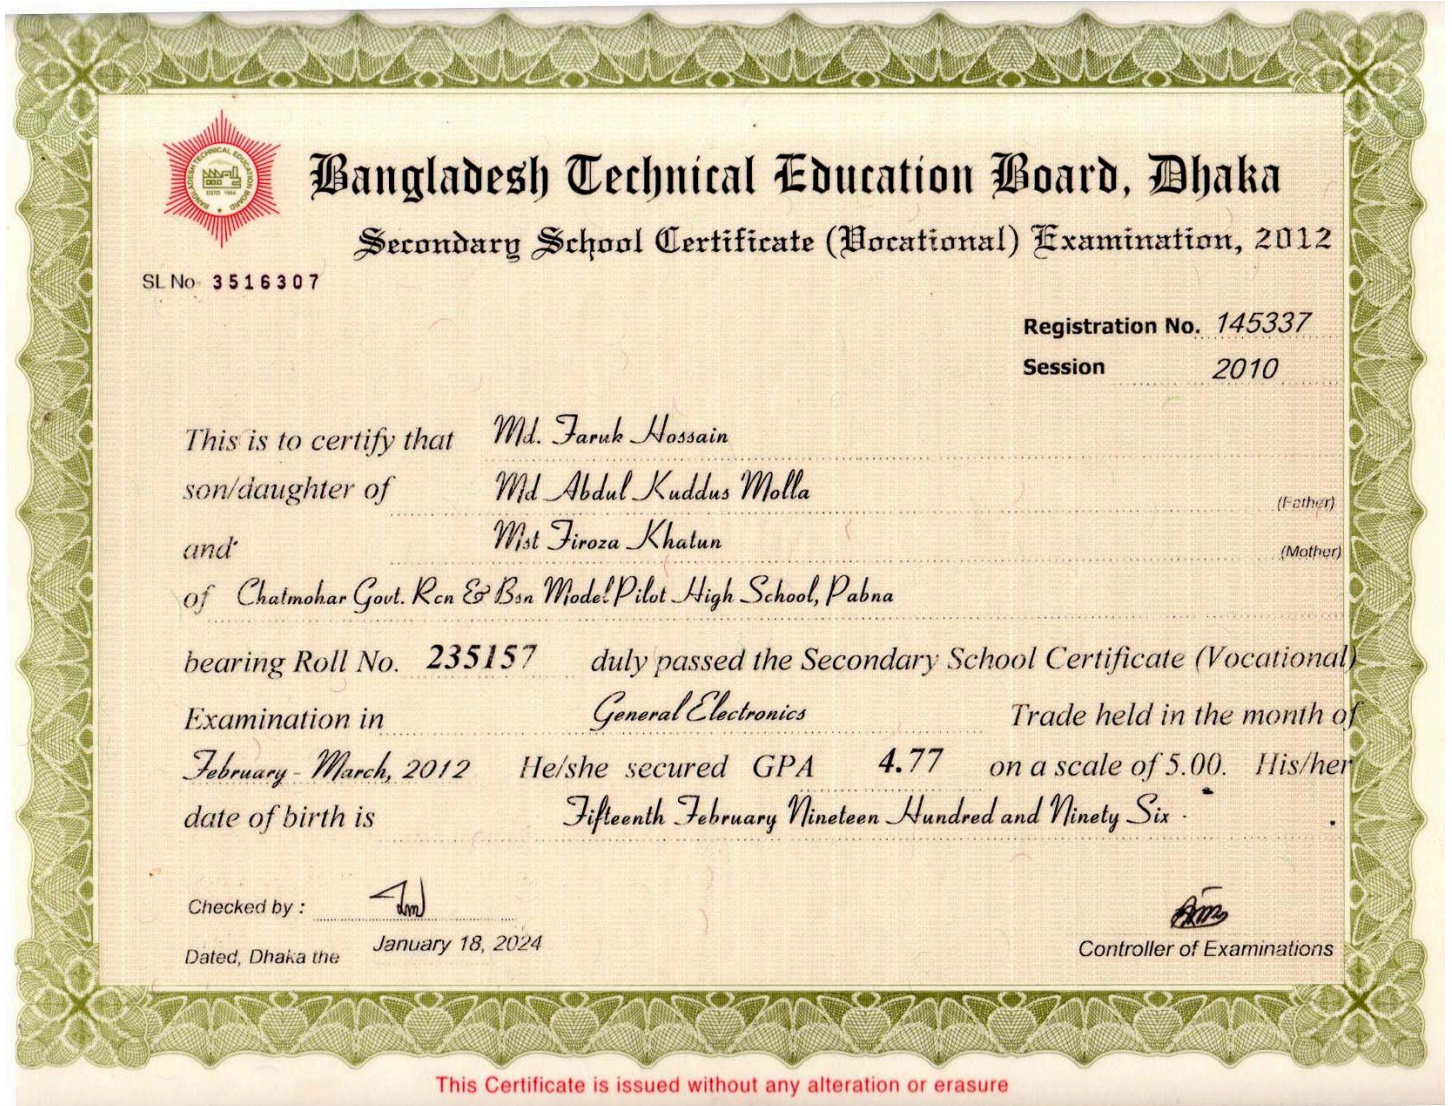 BANGLADESH TECHNICAL EDUCATION BOARD
ESTD 1954
Bangladesh Technical Education Board, Dhaka
Secondary School Certificate (Vocational) Examination, 2012
SL No 3516307
Registration No. 145337
Session 2010
This is to certify that Md. Faruk Hossain
son/daughter of Md Abdul Kuddus Molla (Father)
and Mst Firoza Khatun (Mother)
of Chatmohar Govt. Rcn & Bsn Model Pilot High School, Pabna
bearing Roll No. 235157 duly passed the Secondary School Certificate (Vocational)
Examination in General Electronics Trade held in the month of
February - March, 2012 He/she secured GPA 4.77 on a scale of 5.00. His/her
date of birth is Fifteenth February Nineteen Hundred and Ninety Six .
Checked by :
Dated, Dhaka the January 18, 2024
Controller of Examinations
This Certificate is issued without any alteration or erasure